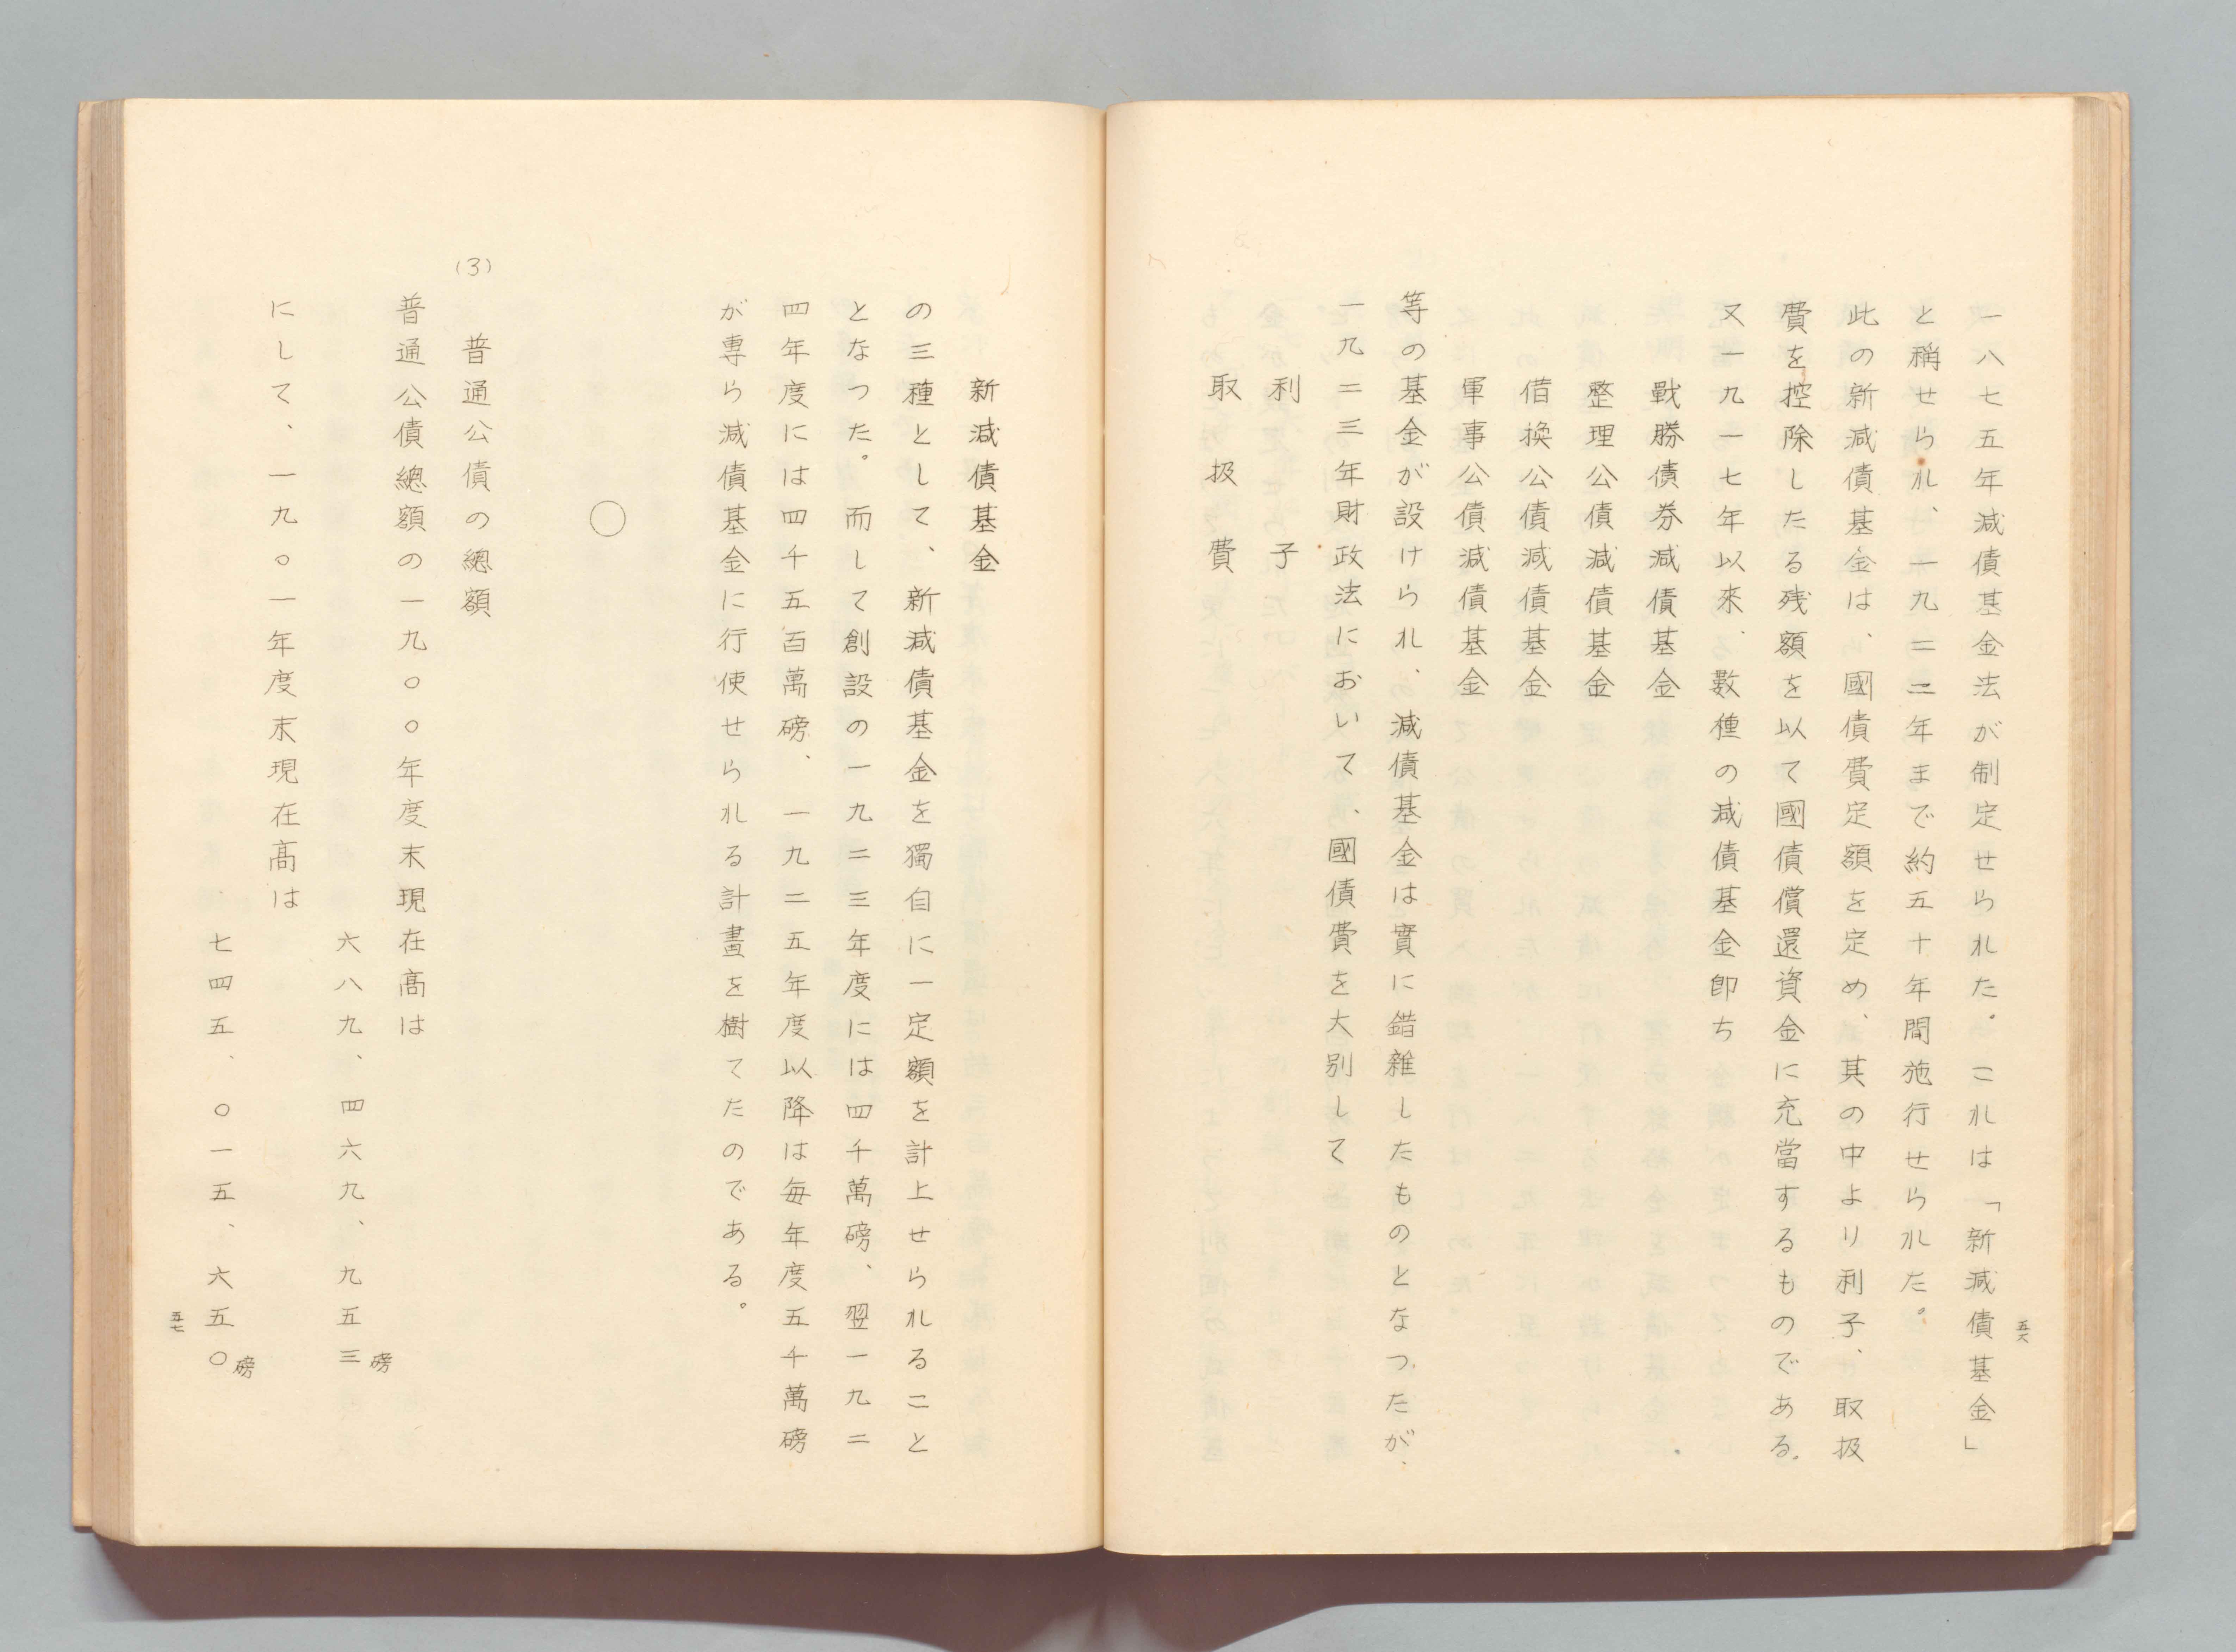 一八七五年減債基金法が制定せられた。これは「新減債基金」
と稱せられ、一九二二年まで約五十年間施行せられた。
此の新減債基金は、國債費定額を定め、其の中より利子、取扱
費を控除したる残額を以て國債償還資金に充當するものである。
又一九一七年以來、數種の減債基金卽ち
戰勝債券減債基金
整理公債減債基金
借換公債減債基金
軍事公債減債基金
等の基金が設けられ、減債基金は實に錯雜したものとなつたが、
一九二三年財政法において、國債費を大別して
利子
取扱費
五六
新減債基金
の三種として、新減債基金を獨自に一定額を計上せられること
となつた。而して創設の一九二三年度には四千萬磅、翌一九二
四年度には四千五百萬磅、一九二五年度以降は毎年度五千萬磅
が專ら減債基金に行使せられる計畫を樹てたのである。
○
(3) 普通公債の總額
普通公債總額の一九〇〇年度末現在髙は
六八九、四六九、九五三磅
にして、一九〇一年度末現在髙は
七四五、〇一五、六五〇磅
五七